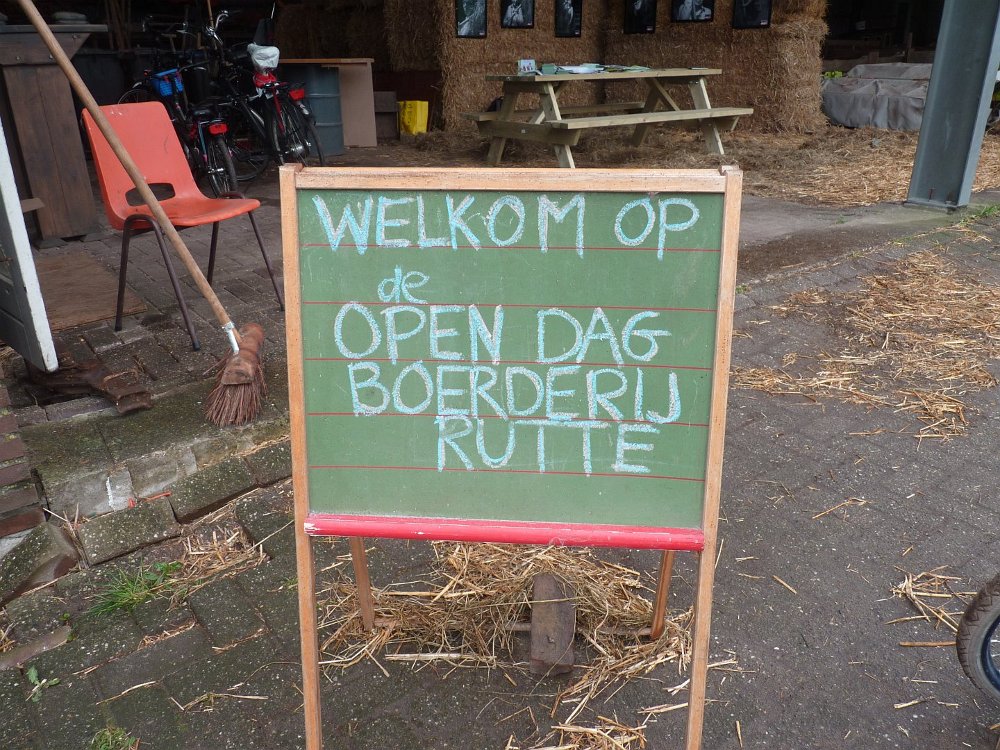 WELKOM OP
de
OPEN DAG
BOERDERIJ
RUTTE